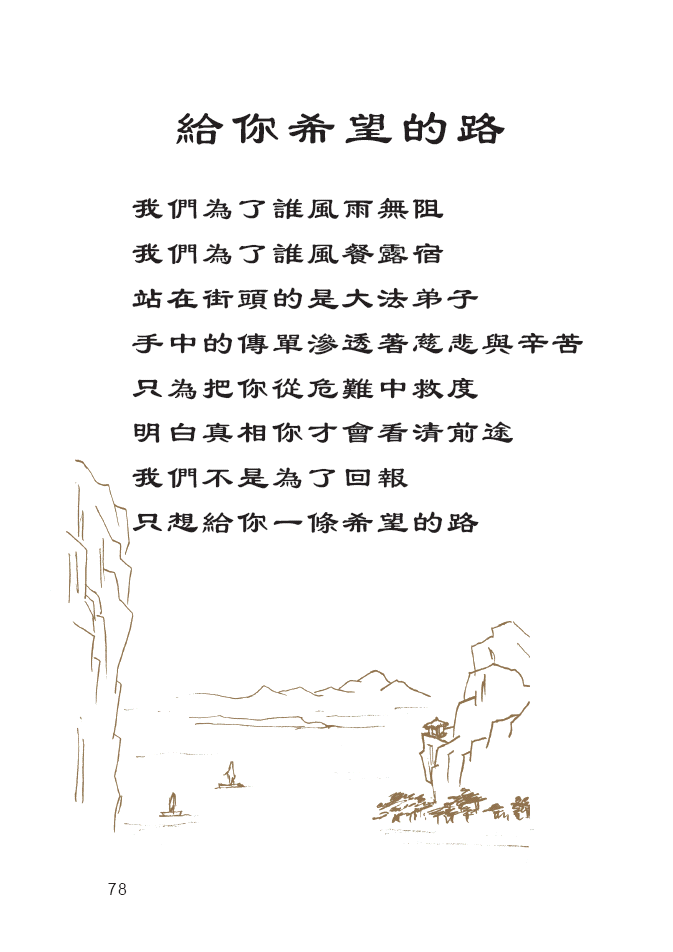 給你希望的路
我們為了誰風雨無阻
我們為了誰風餐露宿
站在街頭的是大法弟子
手中的傳單滲透著慈悲與辛苦
只為把你從危難中救度
明白真相你才會看清前途
我們不是為了回報
只想給你一條希望的路
78